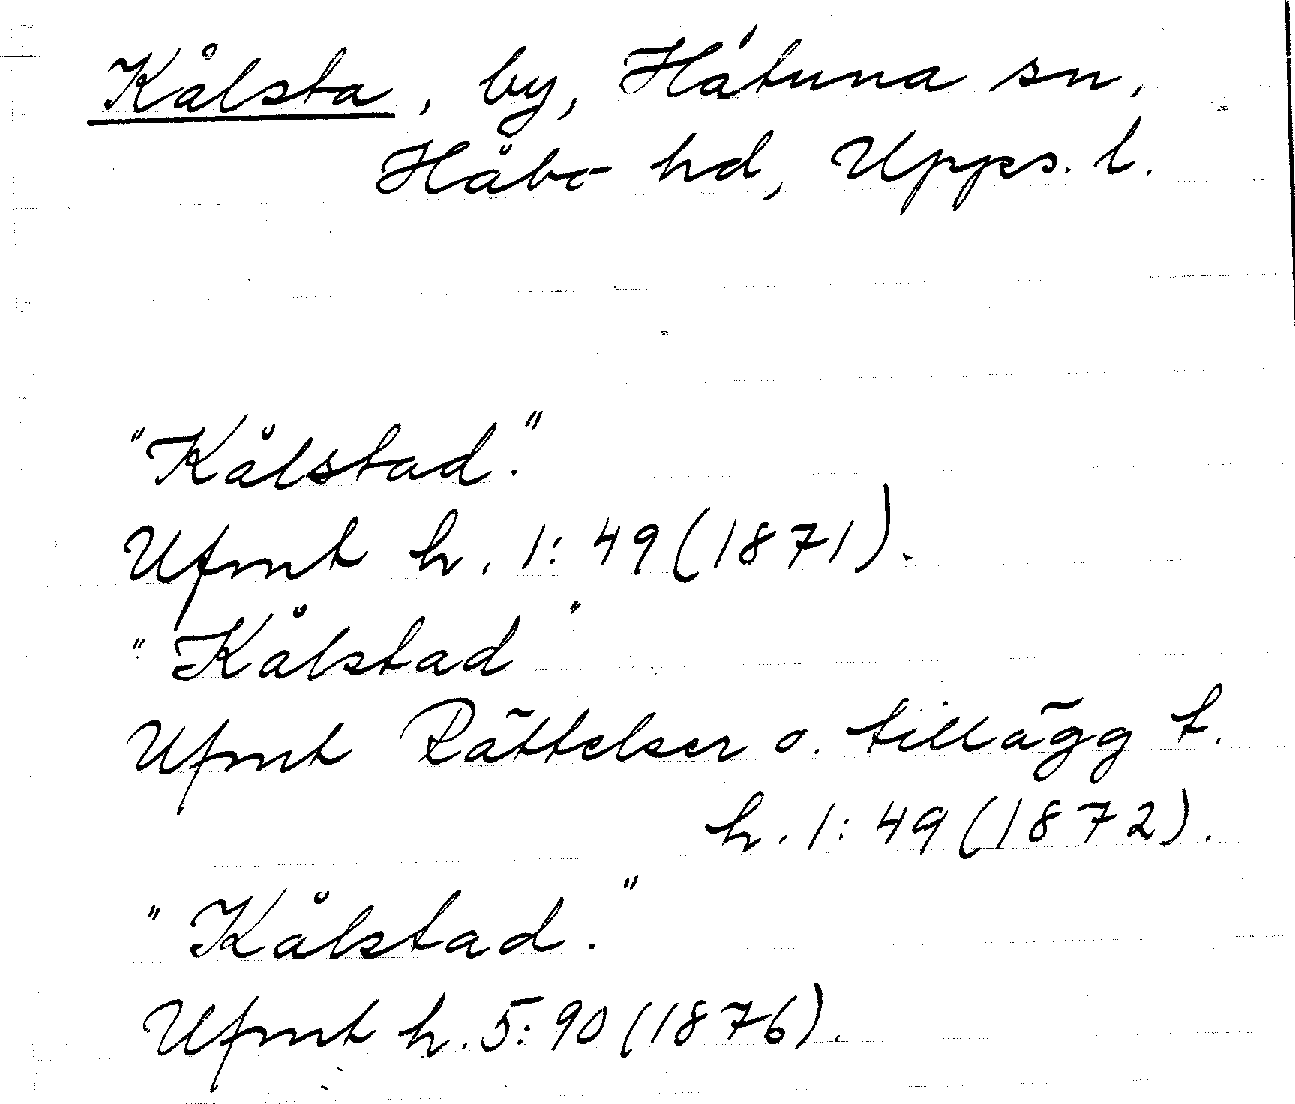 Kålsta, by, Håtuna sn,
Håbo hd, Upps. l.
"Kålstad."
Ufmt h. 1:49 (1871).
"Kålstad"
Ufmt Rättelser o. tillägg t.
h. 1:49 (1872).
"Kålstad."
Ufmt h. 5:90 (1876).